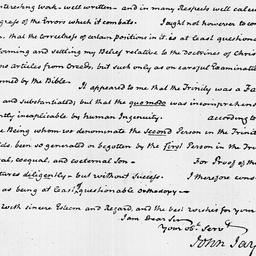 nteresting work - well written - and in many Respects well calcu
ogress of the Errors which it combats. I ought not however to con
, that the correctness of certain positions in it, is at least questiona
orming and settling my Belief relative to the Doctrines of Chris
no articles from Creeds, but such only as on careful Examinatio
rmed by the Bible.
It appeared to me that the Trinity was a Fa
and substantiated; but that the quomodo was incomprehens
ently inexplicable by human Ingenuity. according to
Being whom we denominate the second Person in the Trinit
lds, been so generated or begotten by the first Person in the Tr
al, coequal, and coeternal Son - For Proof of th
tures deligently - but without Success. I therefore cons
as being at least questionable orthodoxy -
with sincere Esteem and Regard, and the best wishes for your
I am Dear Sir
Your Obt. Servt
John Jay